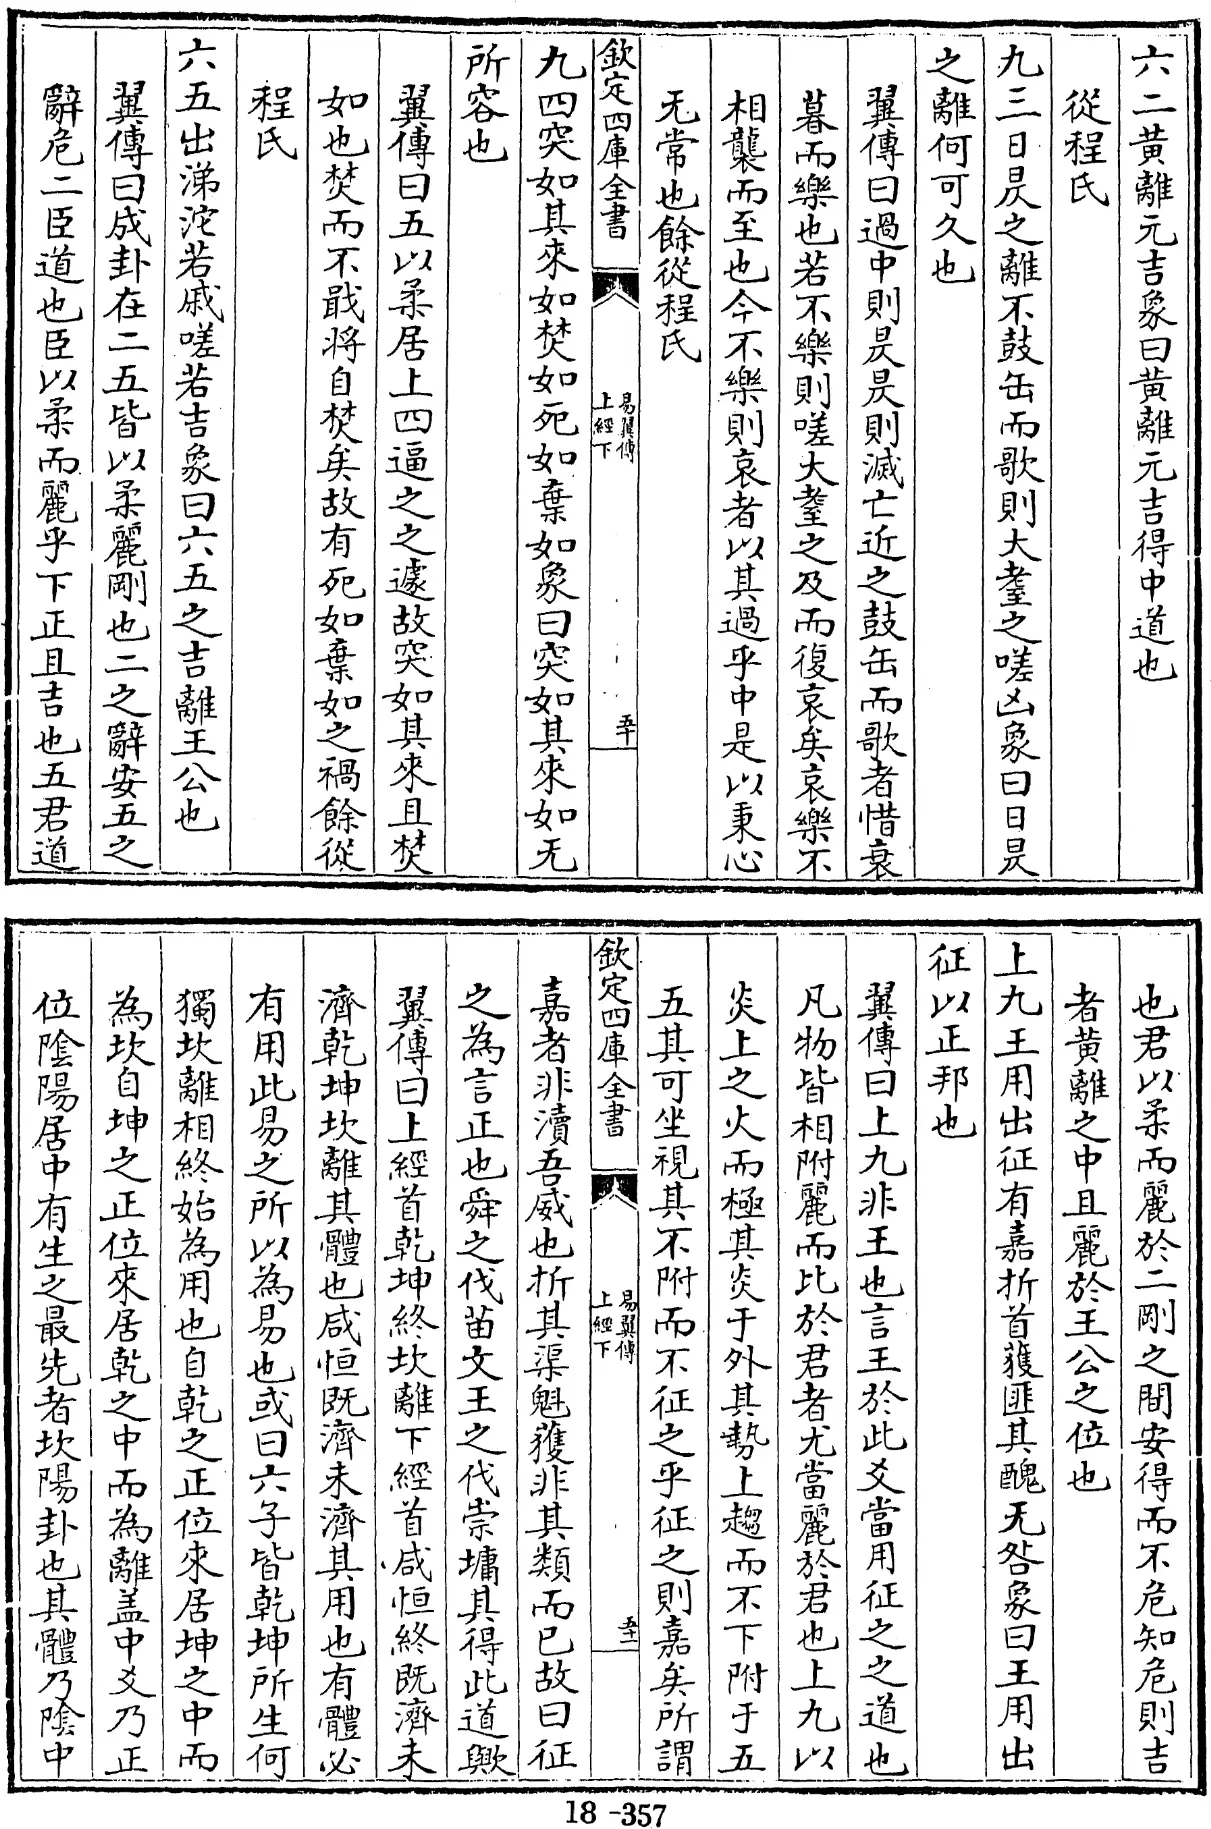 六二黄離元吉象曰黄離元吉得中道也
從程氏
九三日昃之離不鼓缶而歌則大耋之嗟凶象曰日昃
之離何可久也
翼傳曰過中則昃昃則滅亡近之鼓缶而歌者惜衰
暮而樂也若不樂則嗟大耋之及而復哀矣哀樂不
相襲而至也今不樂則哀者以其過乎中是以秉心
无常也餘從程氏
欽定四庫全書
易翼傳
上經下
五十
九四突如其來如焚如死如棄如象曰突如其來如无
所容也
翼傳曰五以柔居上四逼之之遽故突如其來且焚
如也焚而不戢將自焚矣故有死如棄如之禍餘從
程氏
六五出涕沱若戚嗟若吉象曰六五之吉離王公也
翼傳曰成卦在二五皆以柔麗剛也二之辭安五之
辭危二臣道也臣以柔而麗乎下正且吉也五君道
也君以柔而麗於二剛之間安得而不危知危則吉
者黄離之中且麗於王公之位也
上九王用出征有嘉折首獲匪其醜无咎象曰王用出
征以正邦也
翼傳曰上九非王也言王於此爻當用征之之道也
凡物皆相附麗而比於君者尤當麗於君也上九以
炎上之火而極其炎于外其勢上趨而不下附于五
五其可坐視其不附而不征之乎征之則嘉矣所謂
欽定四庫全書
易翼傳
上經下
五十一
嘉者非瀆吾威也折其渠魁獲非其類而已故曰征
之為言正也舜之伐苗文王之伐崇墉其得此道歟
翼傳曰上經首乾坤終坎離下經首咸恒終既濟未
濟乾坤坎離其體也咸恒既濟未濟其用也有體必
有用此易之所以為易也或曰六子皆乾坤所生何
獨坎離相終始為用也自乾之正位來居坤之中而
為坎自坤之正位來居乾之中而為離盖中爻乃正
位陰陽居中有生之最先者坎陽卦也其體乃陰中
18-357